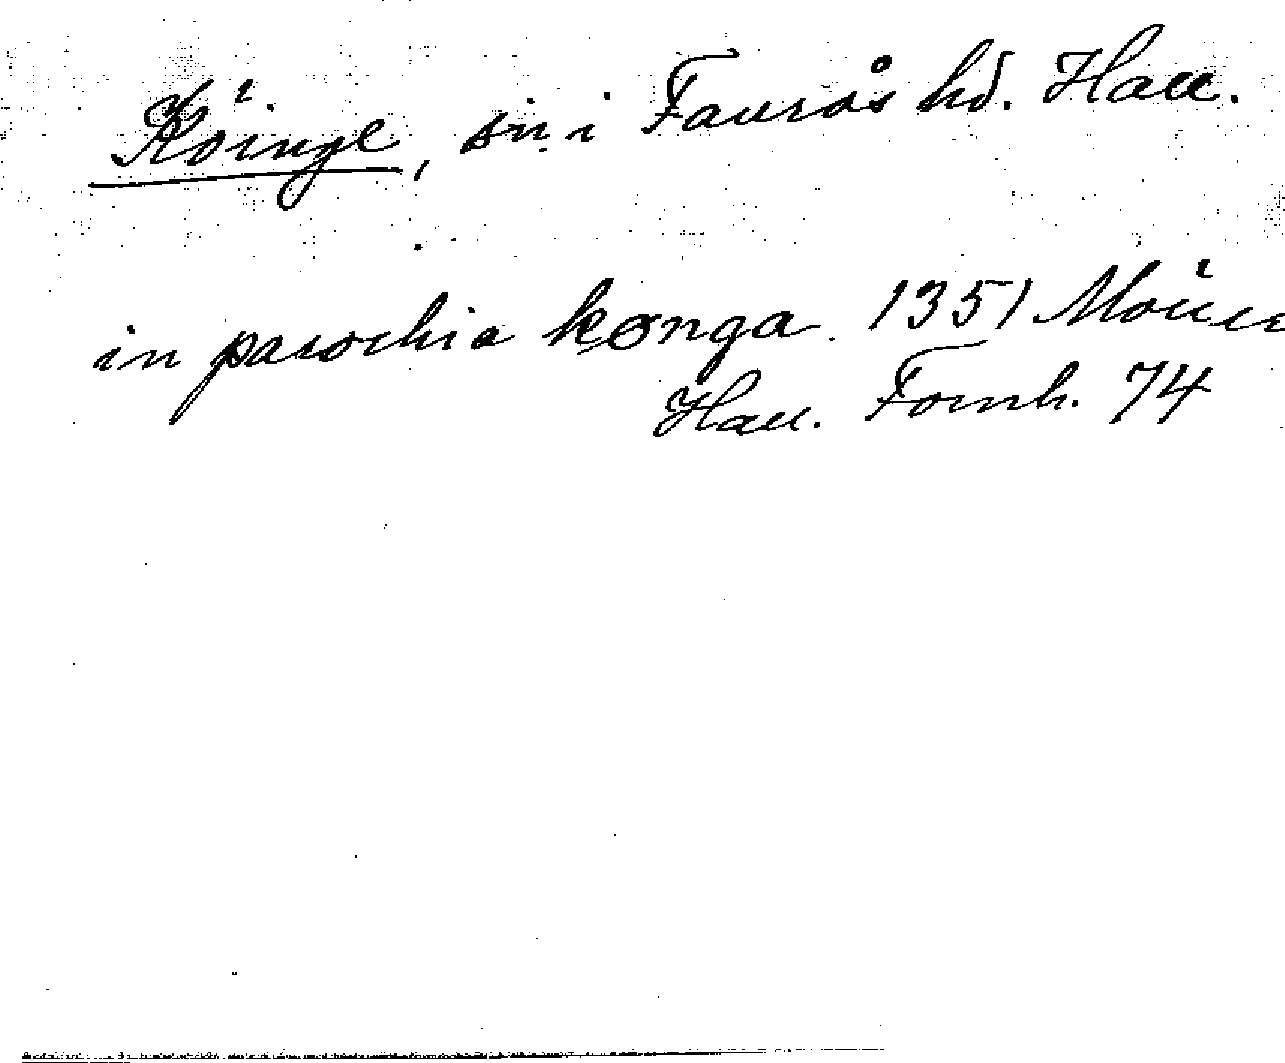 Köinge, sn i Faurås hd. Hall.
in parochia kønga. 1351 Möller
Hall. Fornh. 74